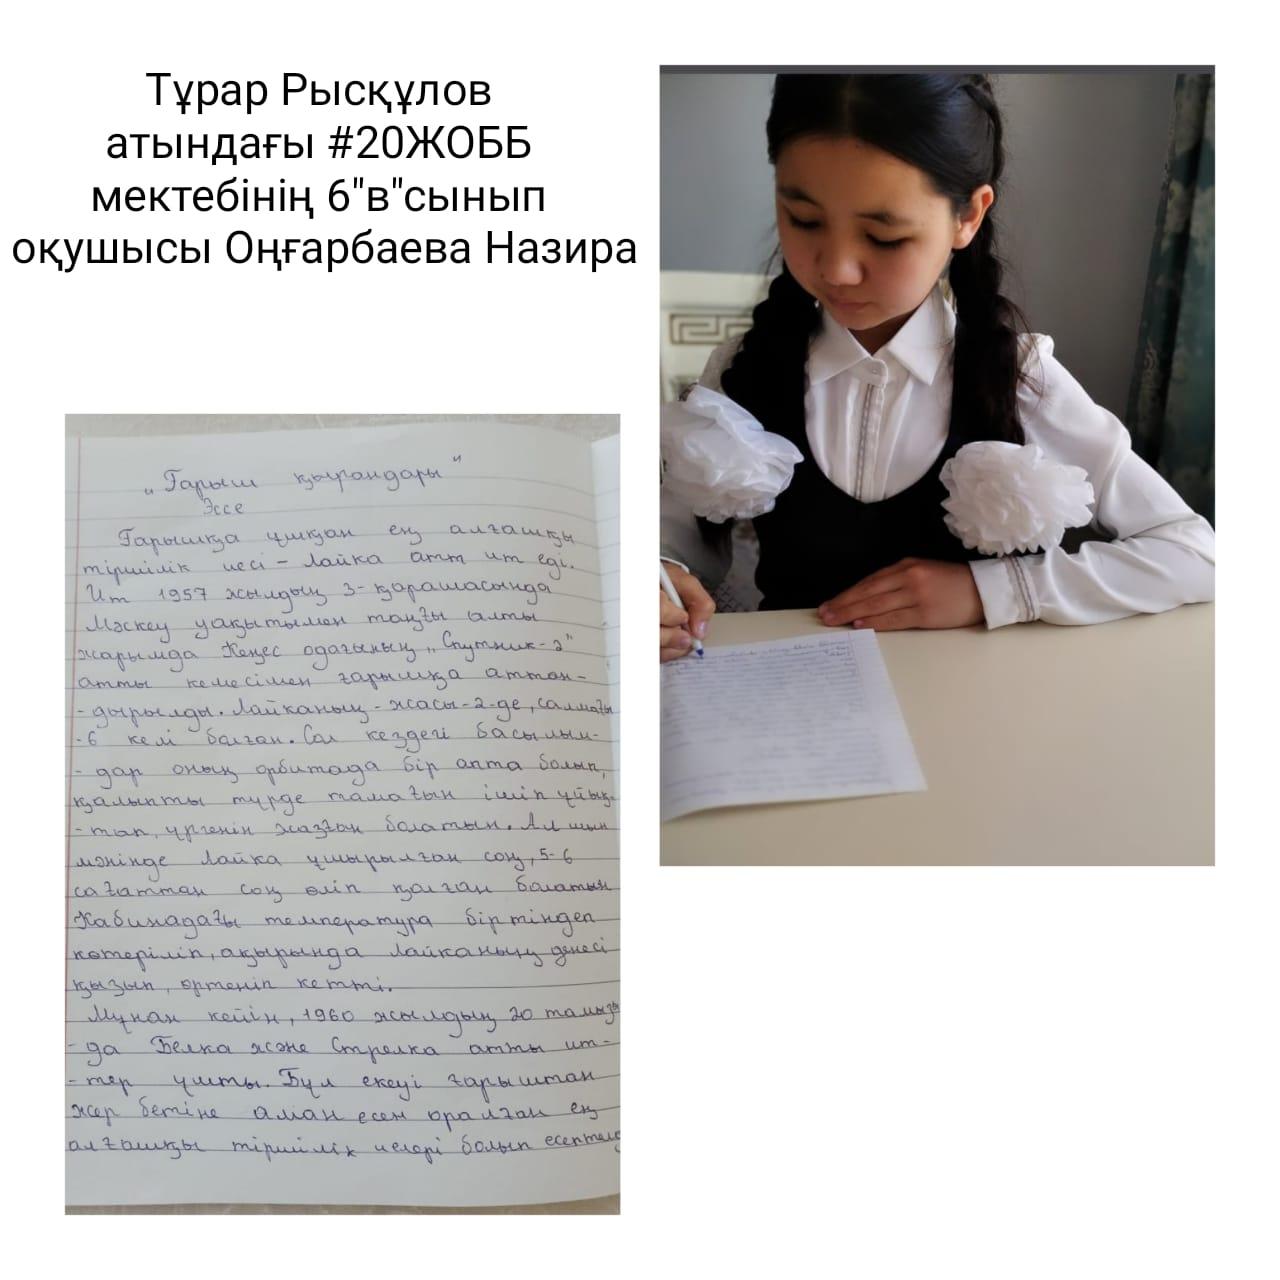 Тұрар Рысқұлов
атындағы #20ЖОББ
мектебінің 6"в"сынып
оқушысы Оңғарбаева Назира
„Ғарыш қырандары"
Эссе
Ғарышқа ұшқан ең алғашқы
тіршілік иесі – Лайка атт ит еді.
Ит 1957 жылдың 3-қарашасында
Мәскеу уақытымен таңғы алты
жарымда Кеңес одағының „Спутник-2"
атты кемесімен ғарышқа аттан-
-дырылды. Лайканың - жасы-2-де, салмағы
-6 келі болған. Сол кездегі басылым-
-дар оның орбитада бір апта болып,
қалыпты түрде тамағын ішіп ұйық-
-тап, үргенін жазған болатын. Ал шын
мәнінде Лайка ұшырылған соң, 5-6
сағаттан соң өліп қалған болатын
Кабинадағы температура біртіндеп
көтеріліп, ақырында Лайканың денесі
қызып, өртеніп кетті.
Мұнан кейін, 1960 жылдың 20 тамызы
-да Белка және Стрелка атты ит-
-тер ұшты. Бұл екеуі ғарыштан
жер бетіне аман есен оралған ең
алғашқы тіршілік иелері болып